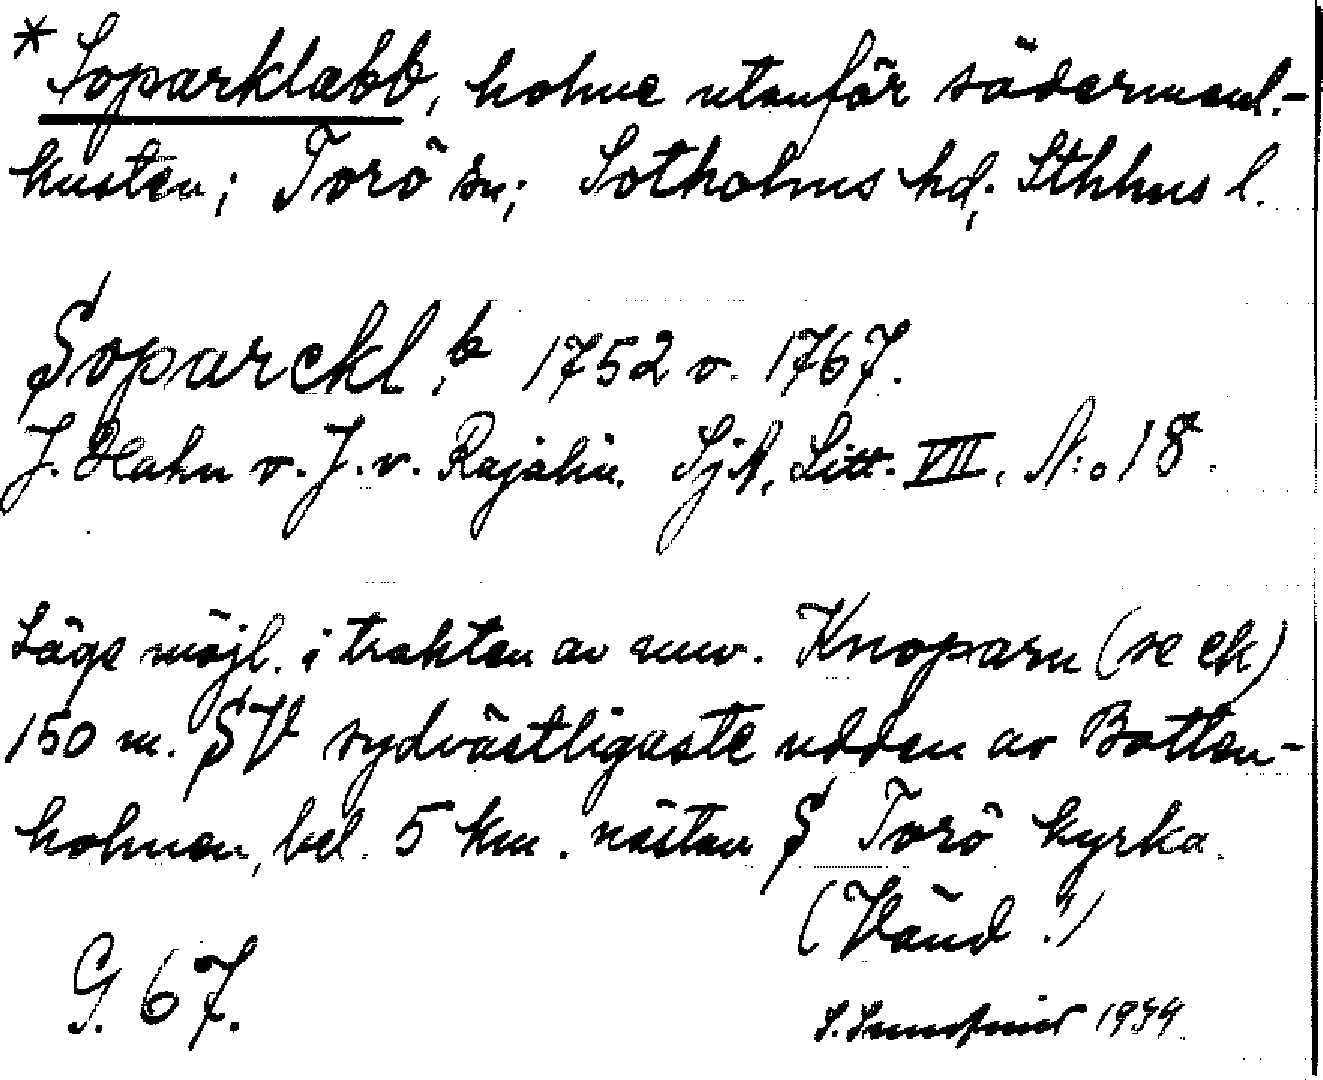 * Soparklabb, holme utanför södermanl.-
kusten; Torö sn; Sotholms hd; Sthlms l.
Soparckl:b 1752 o. 1767.
J. Hahn o. J. v. Rajalin. SjA, Litt. VII, N:o 18.
Läge möjl. i trakten av nuv. Knoparn (se ek)
150 m. SV sydvästligaste udden av Botten-
holmen, bel. 5 km. nästan S Torö kyrka.
(Vänd!)
G. 67.
S. 1939